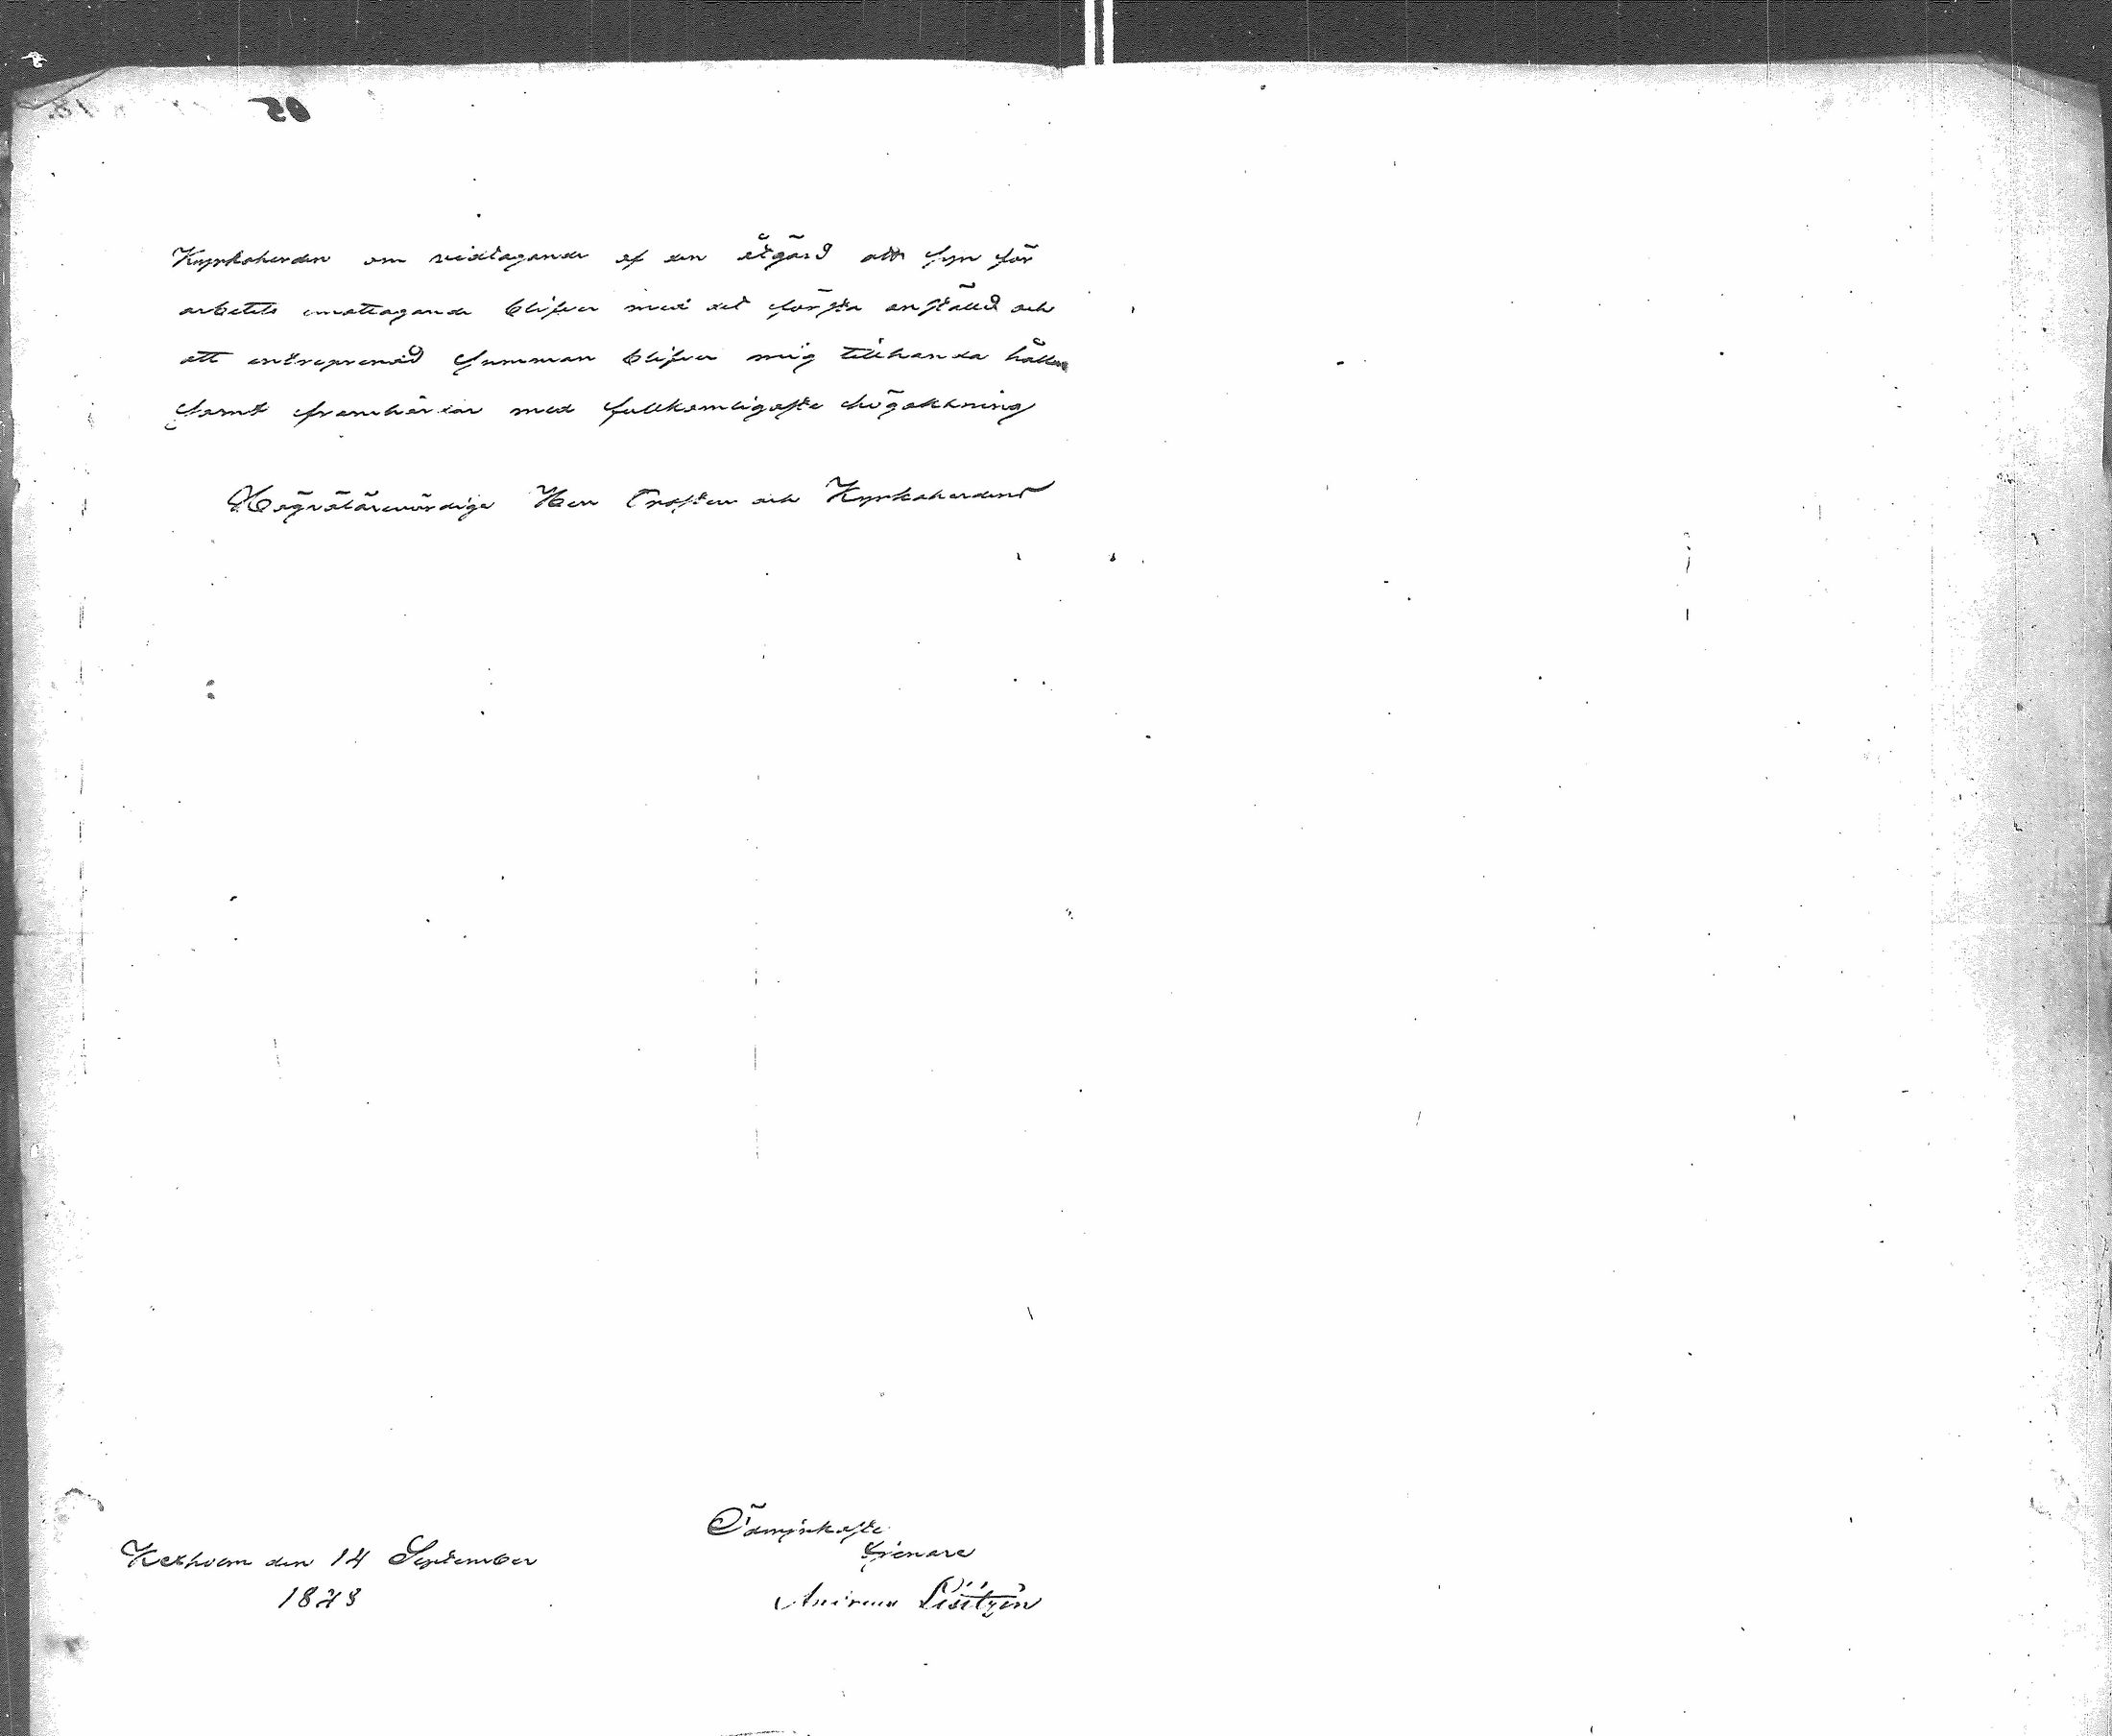 Kyrkoherden om vidtagande af den åtgärd att syn för
arbetets emottagande blifver med det första anstäld och
att entreprenad summan blifver mig tillhanda hållen
samt framhärdar med fullkomligaste högaktning
Högvälärevördige Herr Prosten och Kyrkoherdens
Ödmjukaste
tjenare
Kexholm den 14 September
1873
Andreas